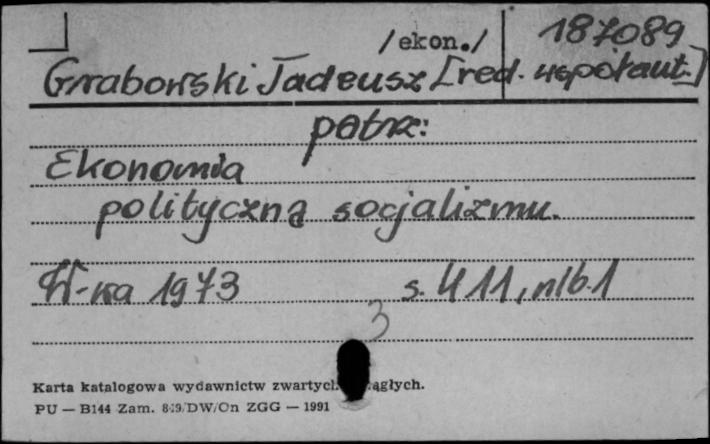 /ekon./ 187089
Grabowski Tadeusz [red. współaut.]
patrz:
Ekonomia
polityczną socjalizmu.
W-wa 1973 s. 411, nlb 1
3
Karta katalogowa wydawnictw zwartych ciągłych.
PU — B144 Zam. 849/DW/On ZGG — 1991